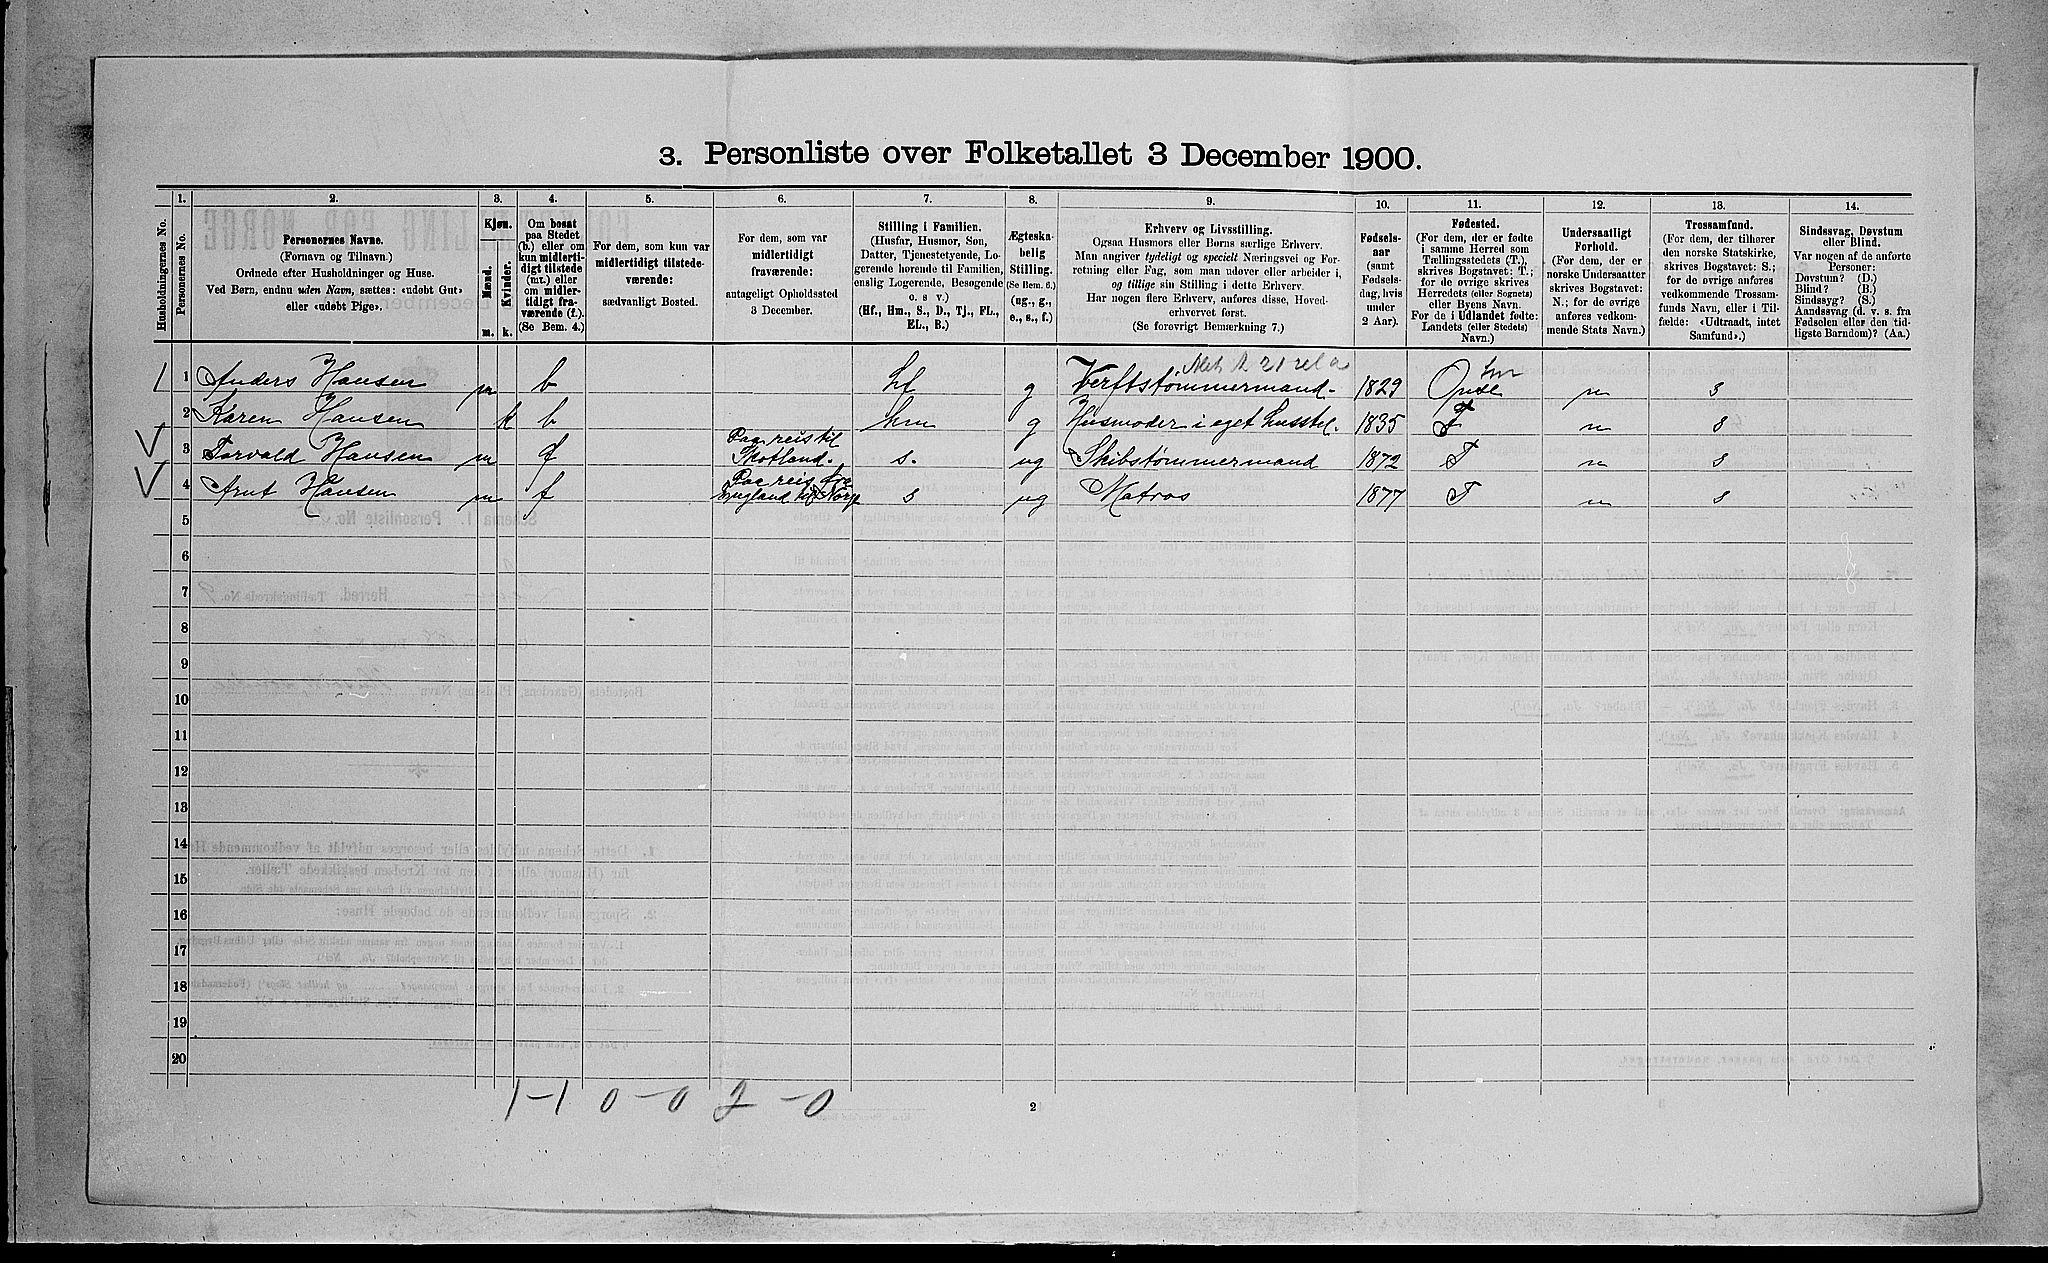 3. Personliste over Folketallet 3 December 1900.
1. 2. 3. 4. 5. 6. 7. 8. 9. 10. 11. 12. 13. 14.
Husholdningernes No.
Personernes No.
Personernes Navne.
(Fornavn og Tilnavn.)
Ordnede efter Husholdninger og Huse.
Ved Børn, endnu uden Navn, sættes: «udøbt Gut»
eller «udøbt Pige».
Kjøn.
Mænd.
Kvinder.
m. k.
Om bosat
paa Stedet
(b.) eller om
kun midlerti-
digt tilstede
(mt.) eller
om midler-
tidigt fra-
værende (f.).
(Se Bem. 4.)
For dem, som kun var
midlertidigt tilstede-
værende:
sædvanligt Bosted.
For dem, som var
midlertidigt
fraværende:
antageligt Opholdssted
3 December.
Stilling i Familien.
(Husfar, Husmor, Søn,
Datter, Tjenestetyende, Lo-
gerende hørende til Familien,
enslig Logerende, Besøgende
o. s v.)
(Hf., Hm., S., D., Tj., FL.,
EL., B.)
Ægteska-
belig
Stilling.
(Se Bem. 6.)
(ug., g.,
e., s., f.)
Erhverv og Livsstilling.
Ogsaa Husmors eller Børns særlige Erhverv.
Man angiver tydeligt og specielt Næringsvei og For-
retning eller Fag, som man udøver eller arbeider i,
og tillige sin Stilling i dette Erhverv.
Har nogen flere Erhverv, anføres disse, Hoved-
erhvervet først.
(Se forøvrigt Bemærkning 7.)
Fødsels-
aar
(samt
Fødsels-
dag, hvis
under
2 Aar).
Fødested.
(For dem, der er fødte
i samme Herred som
Tællingsstedets (T.),
skrives Bogstavet: T.;
for de øvrige skrives
Herredets (eller Sognets)
eller Byens Navn.
For de i Udlandet fødte:
Landets (eller Stedets)
Navn.)
Undersaatligt
Forhold.
(For dem, der er
norske Undersaatter
skrives Bogstavet:
N.; for de øvrige
anføres vedkom-
mende Stats Navn.)
Trossamfund.
(For dem, der tilhører
den norske Statskirke,
skrives Bogstavet: S.;
for de øvrige anføres
vedkommende Trossam-
funds Navn, eller i Til-
fælde: «Udtraadt, intet
Samfund».)
Sindssvag, Døvstum
eller Blind.
Var nogen af de anførte
Personer:
Døvstum? (D.)
Blind? (B.)
Sindssyg? (S.)
Aandssvag (d. v. s. fra
Fødselen eller den tid-
ligste Barndom)? (Aa.)
1 1 Anders Hansen m b hf g Verftstømmermand. 1829 n s
2 Karen Hansen k b hm g Husmoder i eget husstel. 1835 T n s
3 Torvald Hansen m f Paa reis til Skotland. s. ug Skibstømmermand 1872 T n s
4 Arnt Hansen m f Paa reis fra England til Norge s ug Matros 1877 T n s
5
6
7
8
9
10
11
12
13
14
15
16
17
18
19
20
1-1 0-0 2-0
2